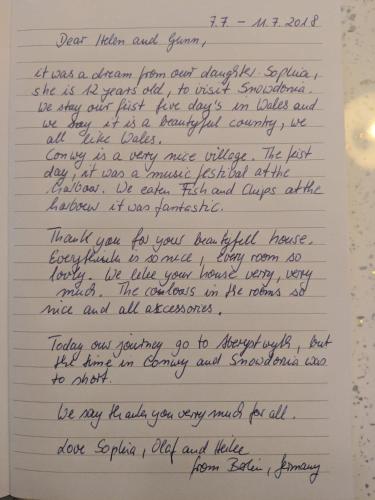 7.7. – 11.7.2018
Dear Helen and Gwnn,
it was a dream from our daughter Sophia,
she is 12 years old, to visit Snowdonia.
We stay our first five day's in Wales and
we say it is a beautyful country, we
all like Wales.
Conwy is a verry nice village. The fist
day, it was a music festival at the
harbour. We eaten Fish and Chips at the
harbour it was fantastic.
Thank you for your beautyfull house.
Everythink is so nice, every room so
lovly. We like your house verry, verry
much. The coulours in the rooms so
nice and all akcessories.
Today our journey go to Aberystwyth, but
the time in Conwy and Snowdonia was
to short.
We say thank you verry much for all.
Love Sophia, Olaf and Heike
from Berlin, Germany